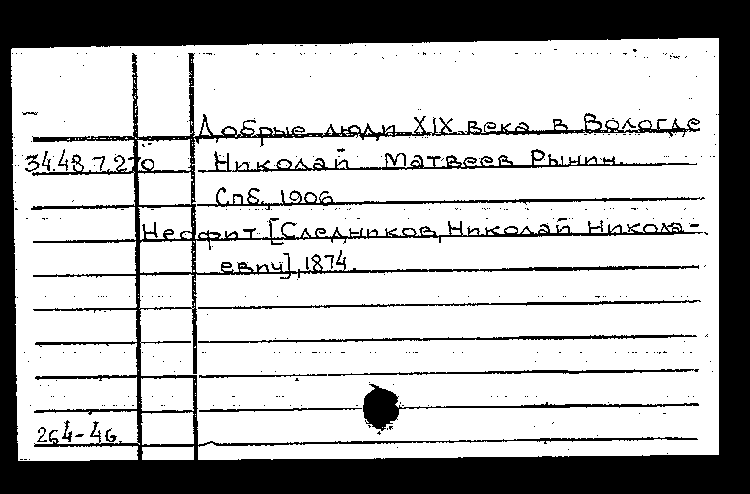 Добрые люди XIX века в Вологде
34.48.7.270 Николай Матвеев Рынин.
Спб., 1906
Неофит [Следников, Николай Никола-
евич], 1874.
264-46.